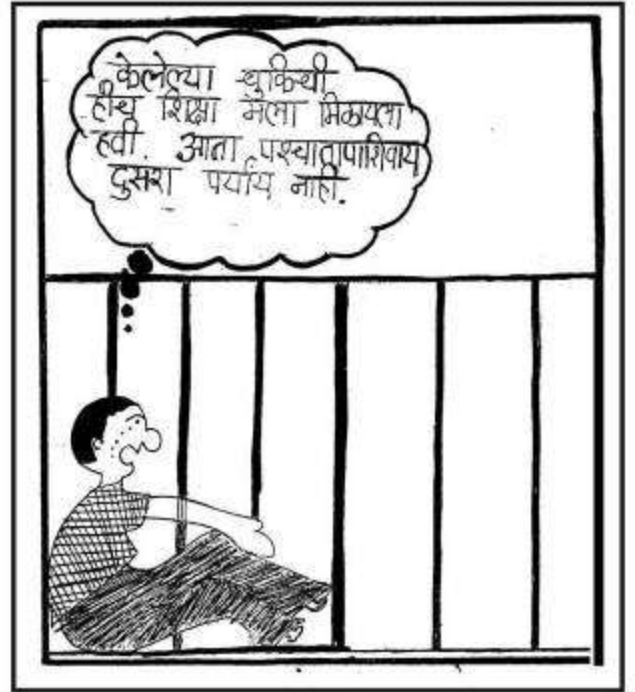 केलेल्या चुकिची
हीच शिक्षा मला मिळायला
हवी. आता पश्चातापाशिवाय
दुसरा पर्याय नाही.